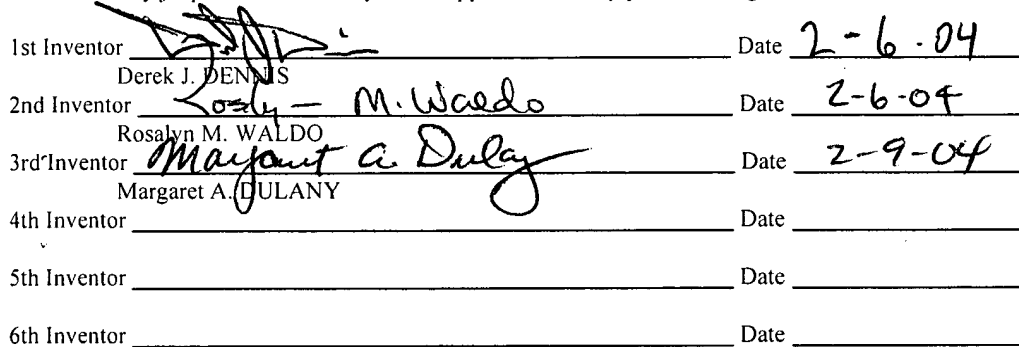 1st Inventor Date 2-6-04
Derek J. DENNIS
2nd Inventor Rosalyn M. Waldo Date 2-6-04
Rosalyn M. WALDO
3rd Inventor Margaret A. Dulany Date 2-9-04
Margaret A. DULANY
4th Inventor Date
5th Inventor Date
6th Inventor Date